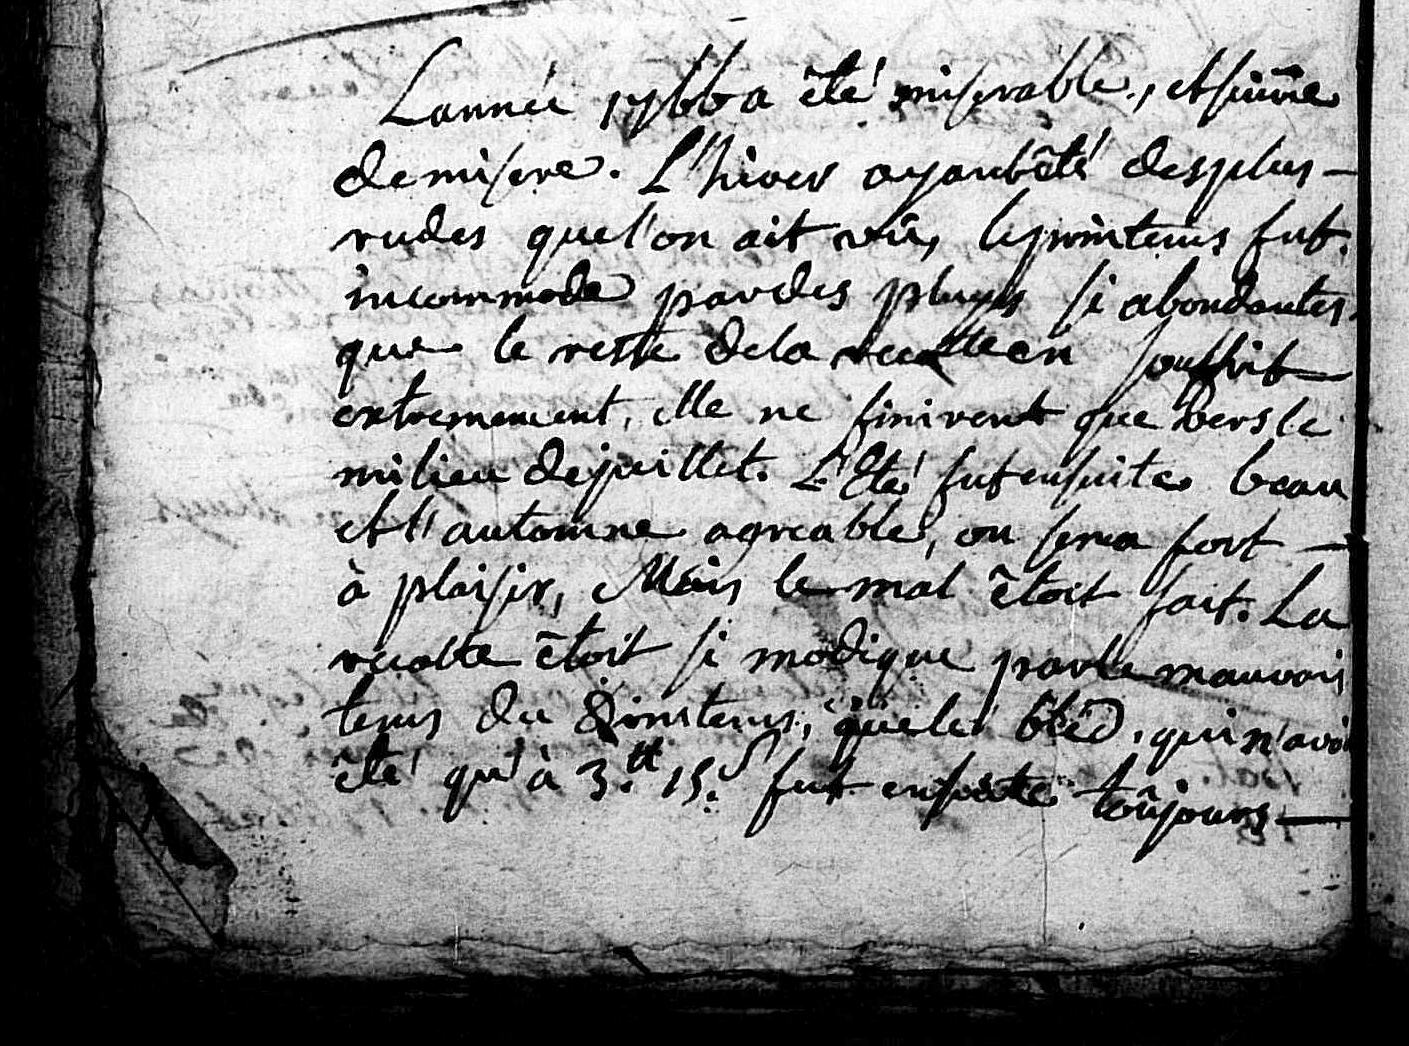 L'année 1766 a êté miserable, et suivie
de misere. L'hiver ayant êté des plus
rudes que l'on ait vû, le printems fut
incommodé par des pluyes si abondantes
que le reste de la recolte en souffrit
extremement, elle ne finirent que vers le
milieu de juillet. L'Eté fut ensuite beau
et l'automne agreable, on sema fort
à plaisir, Mais le mal êtoit fait. La
recolte êtoit si modique par le mauvais
tems du printems, que le bléd, qui n'avoi
êté qu'à 3.tt 15.s fut ensuite toûjours